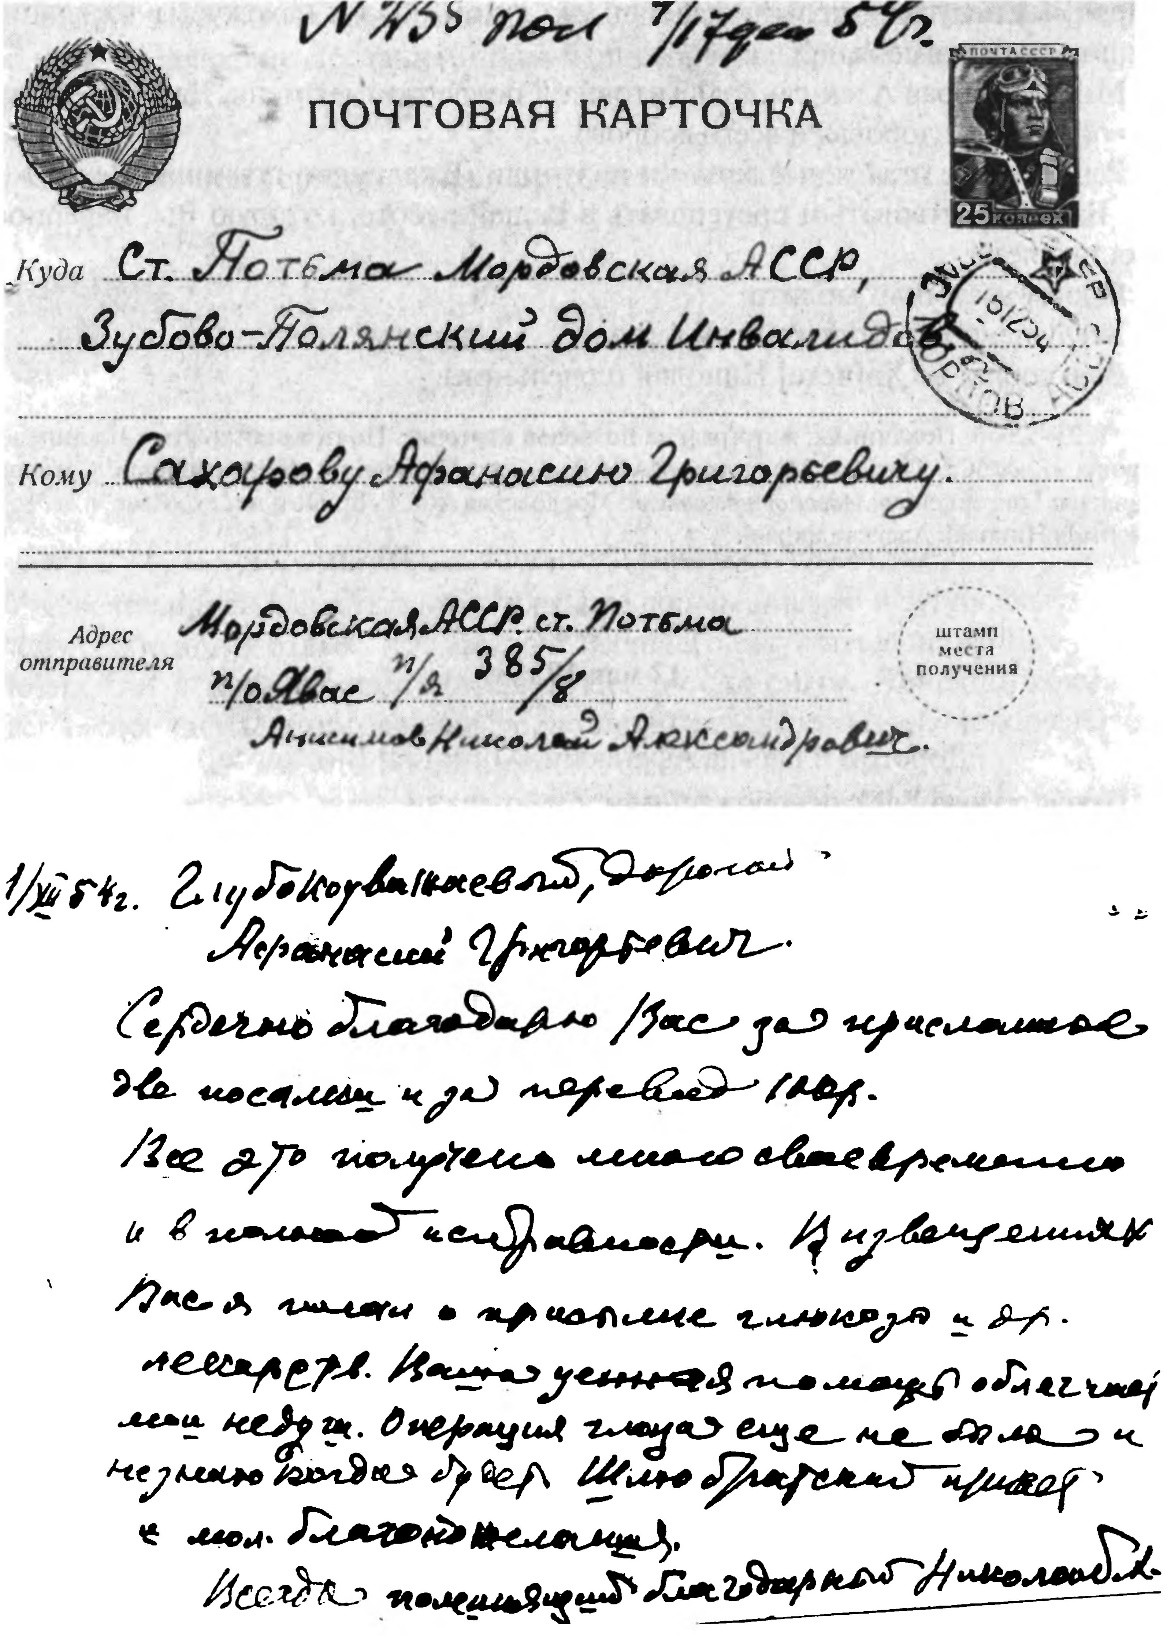 N 235 пол 7/17 дек 54 г.
ПОЧТОВАЯ КАРТОЧКА
ПОЧТА СССР
25 КОПЕЕК
Куда Ст. Потьма Мордовская АССР,
Зубово-Полянский дом Инвалидов
Кому Сахарову Афанасию Григорьевичу.
Адрес отправителя
Мордовская АССР. ст. Потьма
п/о Явас п/я 385/8
Анисимов Николай Александрович.
штамп места получения
1/XII 54 г. Глубокоуважаемый, дорогой
Афанасий Григорьевич.
Сердечно благодарю Вас за присланные
две посылки и за перевод 100 р.
Все это получено мною своевременно
и в полной исправности. В извещениях
Вас я писал о присылке глюкозы и др.
лекарств. Ваша ценная помощь облегчает
мои недуги. Операция глаза еще не была и
не знаю когда будет. Шлю братский привет
и мол. благопожелания.
Всегда помнящий благодарный Николай